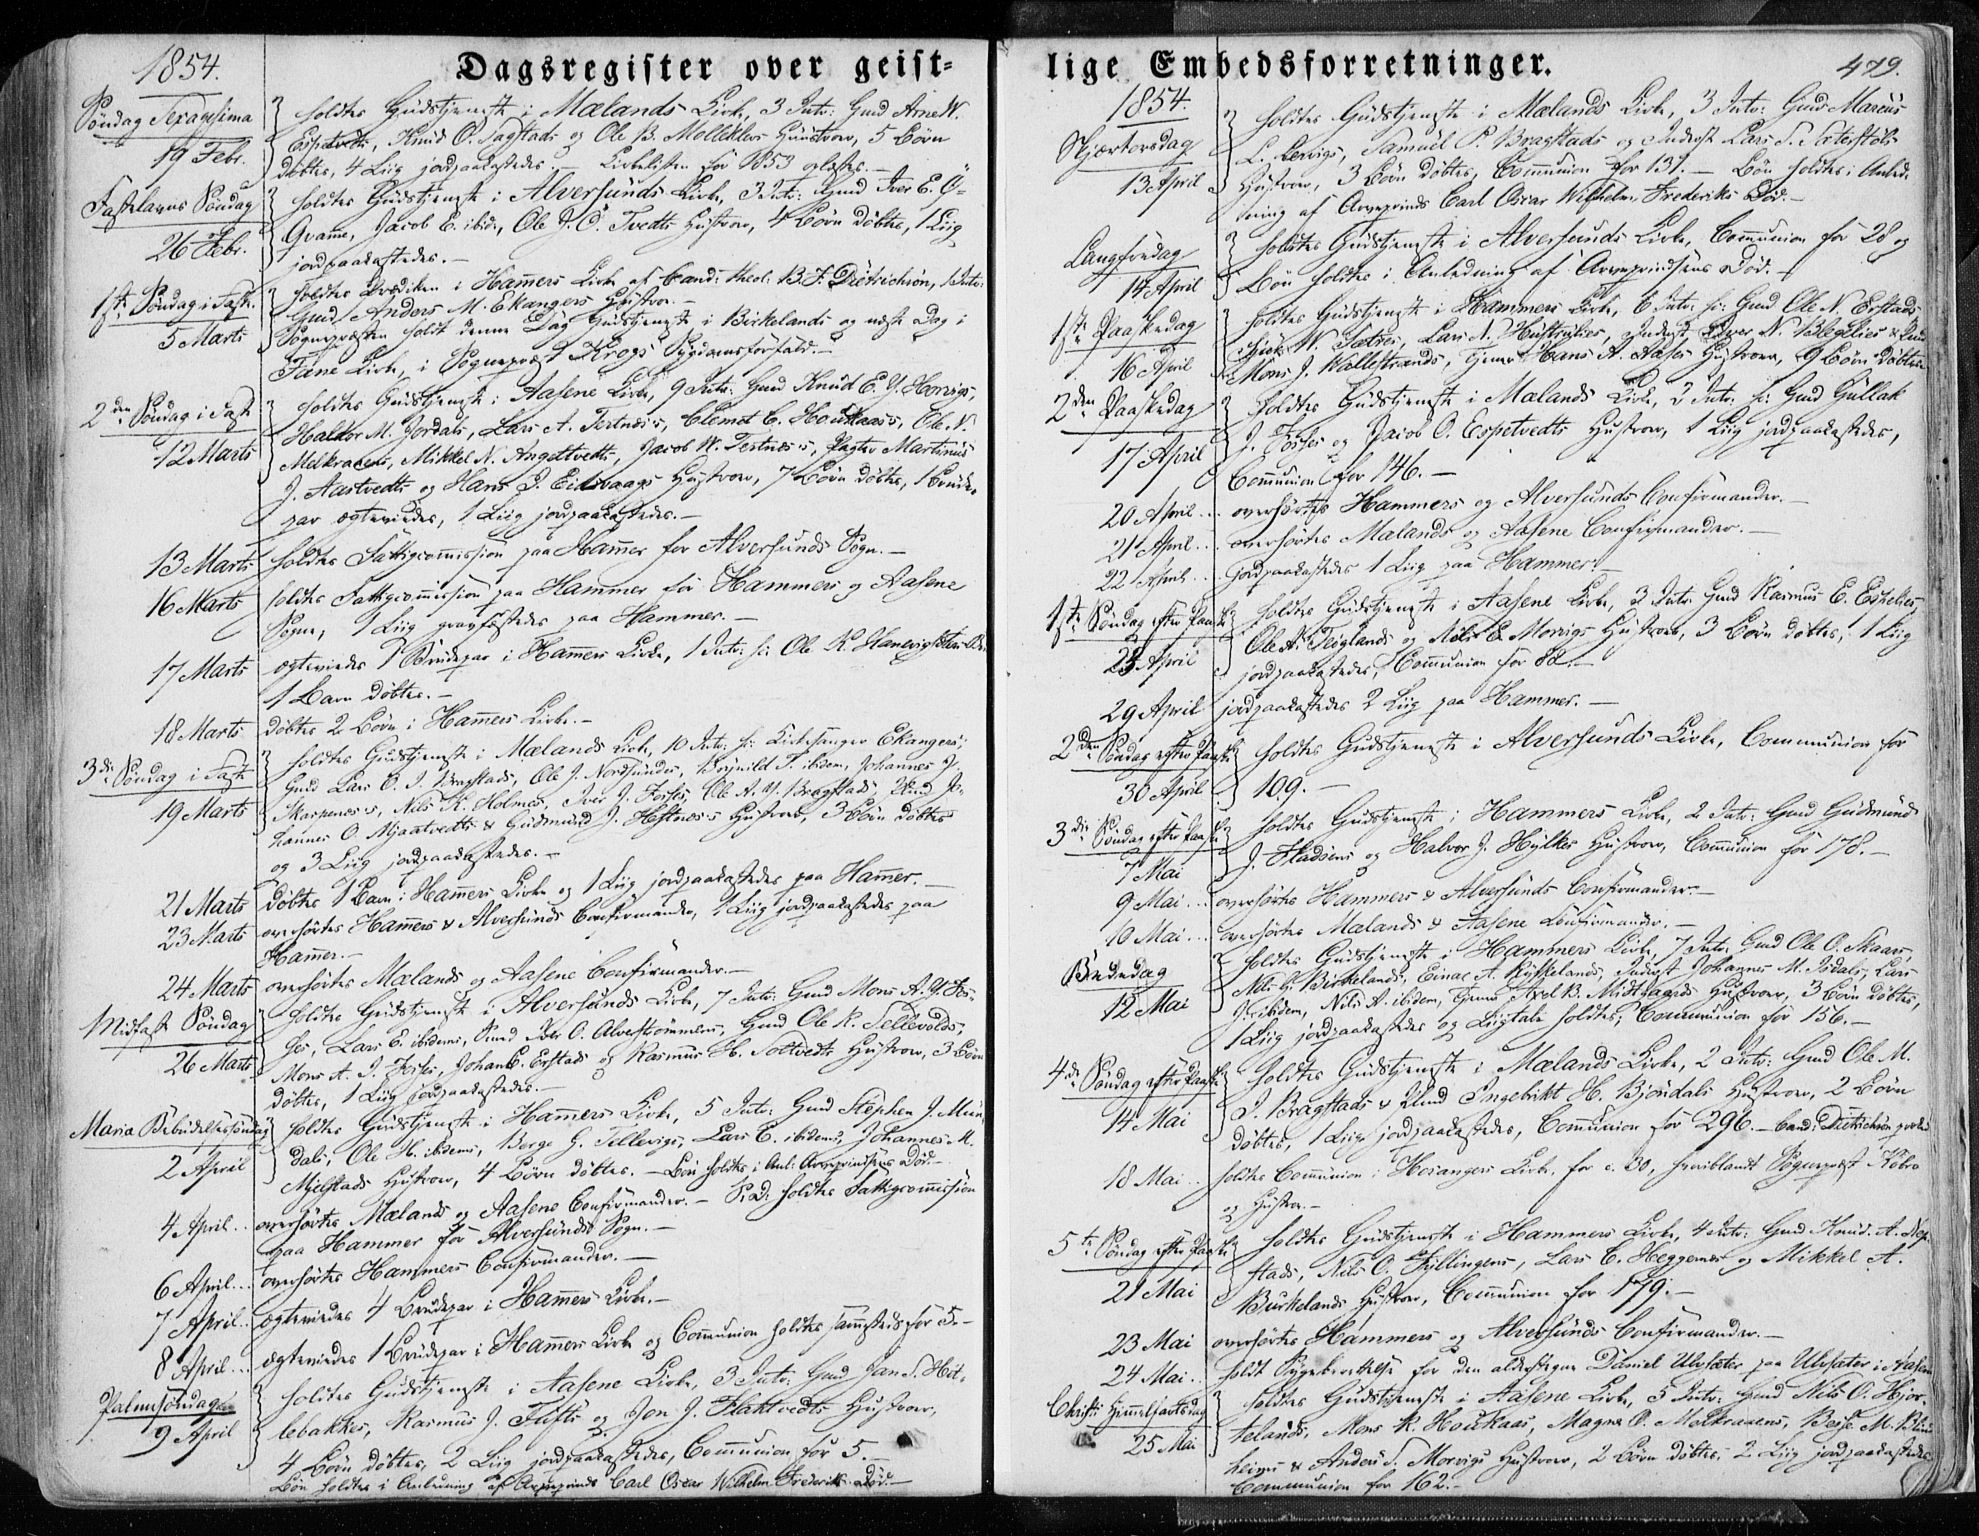 1854.
Dagsregister over geist-
Søndag Sexagesima
19 Febr.
holdtes Gudstjeneste i Mælands Kirke, 3 Intr: Gmd Arne W.
Espetvedts, Knud O. Sagstads og Ole B. Molleklevs Hustroer, 5 Børn
døbtes, 4 Liig jordpaakastedes, Kirkelisten for 1853 oplæstes.-
Fastelavns Søndag
26 Febr.
holdtes Gudstjeneste i Alversunds Kirke, 3 Intr: Gmd Iver E. Ø-
Qvamme, Jacob E. ibid:, Ole J. Ø. Tvedts Hustroer, 4 Børn døbtes, 1 Liig
jordpaakastedes.-
1ste Søndag i Faste
5 Marts
holdtes Prædiken i Hamers Kirke af Cand: theol: B. F. Dietrichson, 1 Intr:
Gmd Anders M. Ekangers Hustroe.-
Sognepræsten holdt denne Dag Gudstjeneste i Birkelands og næste Dag i
Fane Kirke, i Sognepræst Krogs Sygdomsforfald.-
2den Søndag i Faste
12 Marts
holdtes Gudstjeneste i Aasene Kirke, 9 Intr: Gmd Knud E. Y. Horvigs,
Haldor M. Jordals, Lars A. Tertnæs's, Clemet C. Houkaas's, Ole N.
Melkraaens, Mikkel N. Angeltvedts, Jacob W. Tertnæs's, Pagter Martinus
J. Aastvedts og Hans J. Eidsvaags Hustroer, 7 Børn døbtes, 1 Brude-
par ægteviedes, 1 Liig jordpaakastedes.-
13 Marts holdtes Fattigcommission paa Hammer for Alversunds Sogn.-
16 Marts holdtes Fattigcommission paa Hammer for Hammers og Aasene
Sogne, 1 Liig gravfæstedes paa Hammer.-
17 Marts ægteviedes 1 Brudepar i Hamers Kirke, 1 Intr: h: Ole K. Hanevigs
1 Barn døbtes.-
18 Marts døbtes 2 Børn i Hamers Kirke.-
3die Søndag i Faste
19 Marts
holdtes Gudstjeneste i Mælands Kirke, 10 Intr: h: Kirkesanger Ekangers,
Gmd Lars O. I. Bragstads, Ole J. Nordsundes, Brynild T. ibidem, Johannes J.
Skarpenæs's, Nils K. Holmes, Iver J. Fosses, Ole A. Y. Bragstads, Jo-
hannes O. Mjaatvedts & Gudmund J. Heltnæs's Hustroer, 3 Børn døbtes
og 3 Liig jordpaakastedes.-
21 Marts døbtes 1 Barn i Hamers Kirke og 1 Liig jordpaakastedes paa Hamer.-
23 Marts overhørtes Hamers & Alversunds Confirmander, 1 Liig jordpaakastedes paa
Hamer.-
24 Marts overhørtes Mælands og Aasene Confirmander.-
Midfaste Søndag
26 Marts
holdtes Gudstjeneste i Alversunds Kirke, 7 Intr: Gmd Mons A. Y. Fos-
ses, Lars E. ibidems, O. Alverstrømmens, Gmd Ole K. Tellevolds,
Mons A. I. Fosses, Johan E. Erstads og Rasmus H. Toltvedts Hustroer, 3 Børn
døbtes, 1 Liig jordpaakastedes.-
Maria Bebudelsessøndag
2 April
holdtes Gudstjeneste i Hamers Kirke, 5 Intr: Gmd Stephen J. Mun-
dals, Ole H. ibidems, Børge G. Tellevigs, Lars C. ibidems, Johannes K.
Mjelstads Hustroer, 4 Børn døbtes. - Bøn holdtes i Anl: Arveprindsens Død.-
4 April.. overhørtes Mælands og Aasene Confirmander.- S. D. holdtes Fattigcommission
paa Hammer for Alversunds Sogn.-
6 April... overhørtes Hammers Confirmander.-
7 April.. ægteviedes 4 Brudepar i Hamers Kirke.-
8 April... ægteviedes 1 Brudepar i Hamers Kirke og Communion holdtes sammesteds for 5.-
Palmesøndag
9 April
holdtes Gudstjeneste i Aasene Kirke, 3 Intr: Gmd Jan S. Hit-
lebakkes, Rasmus J. Tufts og Jon J. Flaktvedts Hustroer,
4 Børn døbtes, 2 Liig jordpaakastedes, Communion for 5.-
Bøn holdtes i Anledning af Arveprinds Carl Oscar Wilhelm Frederiks Død.-
lige Embedsforretninger.
479.
1854.
Skjærtorsdag
13 April
holdtes Gudstjeneste i Mælands Kirke, 3 Intr: Gmd Marcus
L. Lervigs, Samuel P. Bragstads og Inderst Lars S. Sæterstøls
Hustroer, 3 Børn døbtes, Communion for 131.- Bøn holdtes i Anled-
ning af Arveprinds Carl Oscar Wilhelm Frederiks Død.-
Langfredag
14 April
holdtes Gudstjeneste i Alversunds Kirke, Communion for 28 og
Bøn holdtes i Anledning af Arveprindsens Død.-
1ste Paaskedag
16 April
holdtes Gudstjeneste i Hammers Kirke, 6 Intr: h: Gmd Ole N. Erstads,
W. Sætres, Lars N. Hustrulies, Inderst Iver N. &
Mons J. Wallestrands, Hans A. Aases Hustroer, 9 Børn døbtes
2den Paaskedag
17 April
holdtes Gudstjeneste i Mælands Kirke, 2 Intr: h: Gmd Gullak
J. Fosses og Jacob O. Espetvedts Hustroer, 1 Liig jordpaakastedes,
Communion for 146.-
20 April... overhørtes Hammers og Alversunds Confirmander.-
21 April... overhørtes Mælands og Aasene Confirmander.-
22 April.. jordpaakastedes 1 Liig paa Hammer.-
1ste Søndag efter Paaske
23 April
holdtes Gudstjeneste i Aasene Kirke, 3 Intr: Gmd Rasmus E. Eskelies,
Ole A. Teiglands og Nils E. Morvigs Hustroer, 3 Børn døbtes, 1 Liig
jordpaakastedes, Communion for 82.-
29 April jordpaakastedes 2 Liig paa Hammer.-
2den Søndag efter Paaske
30 April
holdtes Gudstjeneste i Alversunds Kirke, Communion for
109.-
3die Søndag efter Paaske
7 Mai
holdtes Gudstjeneste i Hammers Kirke, 2 Intr: Gmd Gudmund
J. Fladsens og Halvor J. Hylkes Hustroer, Communion for 178.-
9 Mai... overhørtes Hammers & Alversunds Confirmander.-
10 Mai... overhørtes Mælands & Aasene Confirmander.-
Bededag
12 Mai
holdtes Gudstjeneste i Hammers Kirke, 7 Intr: Gmd Ole O. Skaars,
Nils G. Birkelands, Einar A. Rylkelands, Inderst Johannes M. Isdals, Lars
J. ibidem, Nils A. ibidem, Axel B. Midtgaards Hustroer, 3 Børn døbtes,
1 Liig jordpaakastedes og Liigtale holdtes, Communion for 156.-
4de Søndag efter Paaske
14 Mai
holdtes Gudstjeneste i Mælands Kirke, 2 Intr: Gmd Ole M.
I. Bragstads & Ingebrikt H. Bjøndals Hustroer, 2 Børn
døbtes, 1 Liig jordpaakastedes, Communion for 296.- Cand: Dietrichson
18 Mai.. holdtes Communion i Hosangers Kirke for c. 30, hvoriblandt Sognepræst Kobro
og Hustroe.-
5te Søndag efter Paaske
21 Mai
holdtes Gudstjeneste i Hammers Kirke, 4 Intr: Gmd Knud A.
stads, Nils O. Fyllingens, Lars C. Heggernes og Mikkel A.
Burkelands Hustroer, Communion for 179.-
23 Mai overhørtes Hammers og Alversunds Confirmander.-
24 Mai.. holdt Sygeberettelse for den alderstegne Daniel Ulvsæter paa Ulvsæter i Aasene
Christi Himmelfartsdag
25 Mai
holdtes Gudstjeneste i Aasene Kirke, 5 Intr: Gmd Nils O. Hjor-
telands, Mons K. Houkaas, Magne O. Melkraaens, M.
heims & Anders S. Morvigs Hustroer, 2 Børn døbtes, 2 Liig jordpaakastedes
Communion for 162.-